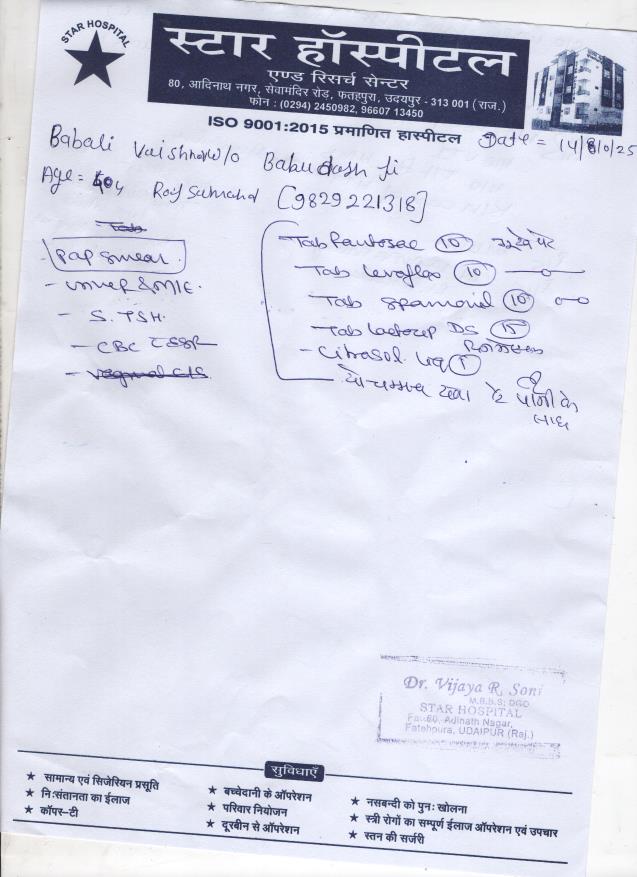 STAR HOSPITAL
स्टार हॉस्पीटल
एण्ड रिसर्च सेन्टर
80, आदिनाथ नगर, सेवामंदिर रोड, फतहपुरा, उदयपुर - 313 001 (राज.)
फोन : (0294) 2450982, 96607 13450
ISO 9001:2015 प्रमाणित हास्पीटल
Date = 14/10/25
Babali Vaishnav w/o Babudash Ji
Age = 40y Rajsamand [9829221318]
Tab
Pap smear
- S. TSH.
- CBC ESR
- Vaginal C/S
Tab Pantosec (10)
Tab Levoflox (10)
Tab (10)
Tab DS (15)
- Citrasol (1)
दो चम्मच दवा पानी के
साथ
Dr. Vijaya R. Soni
M.B.B.S; DGO
STAR HOSPITAL
80, Adinath Nagar,
Fatehpura, UDAIPUR (Raj.)
सुविधाएँ
★ सामान्य एवं सिजेरियन प्रसूति
★ नि:संतानता का ईलाज
★ कॉपर-टी
★ बच्चेदानी के ऑपरेशन
★ परिवार नियोजन
★ दूरबीन से ऑपरेशन
★ नसबन्दी को पुन: खोलना
★ स्त्री रोगों का सम्पूर्ण ईलाज ऑपरेशन एवं उपचार
★ स्तन की सर्जरी